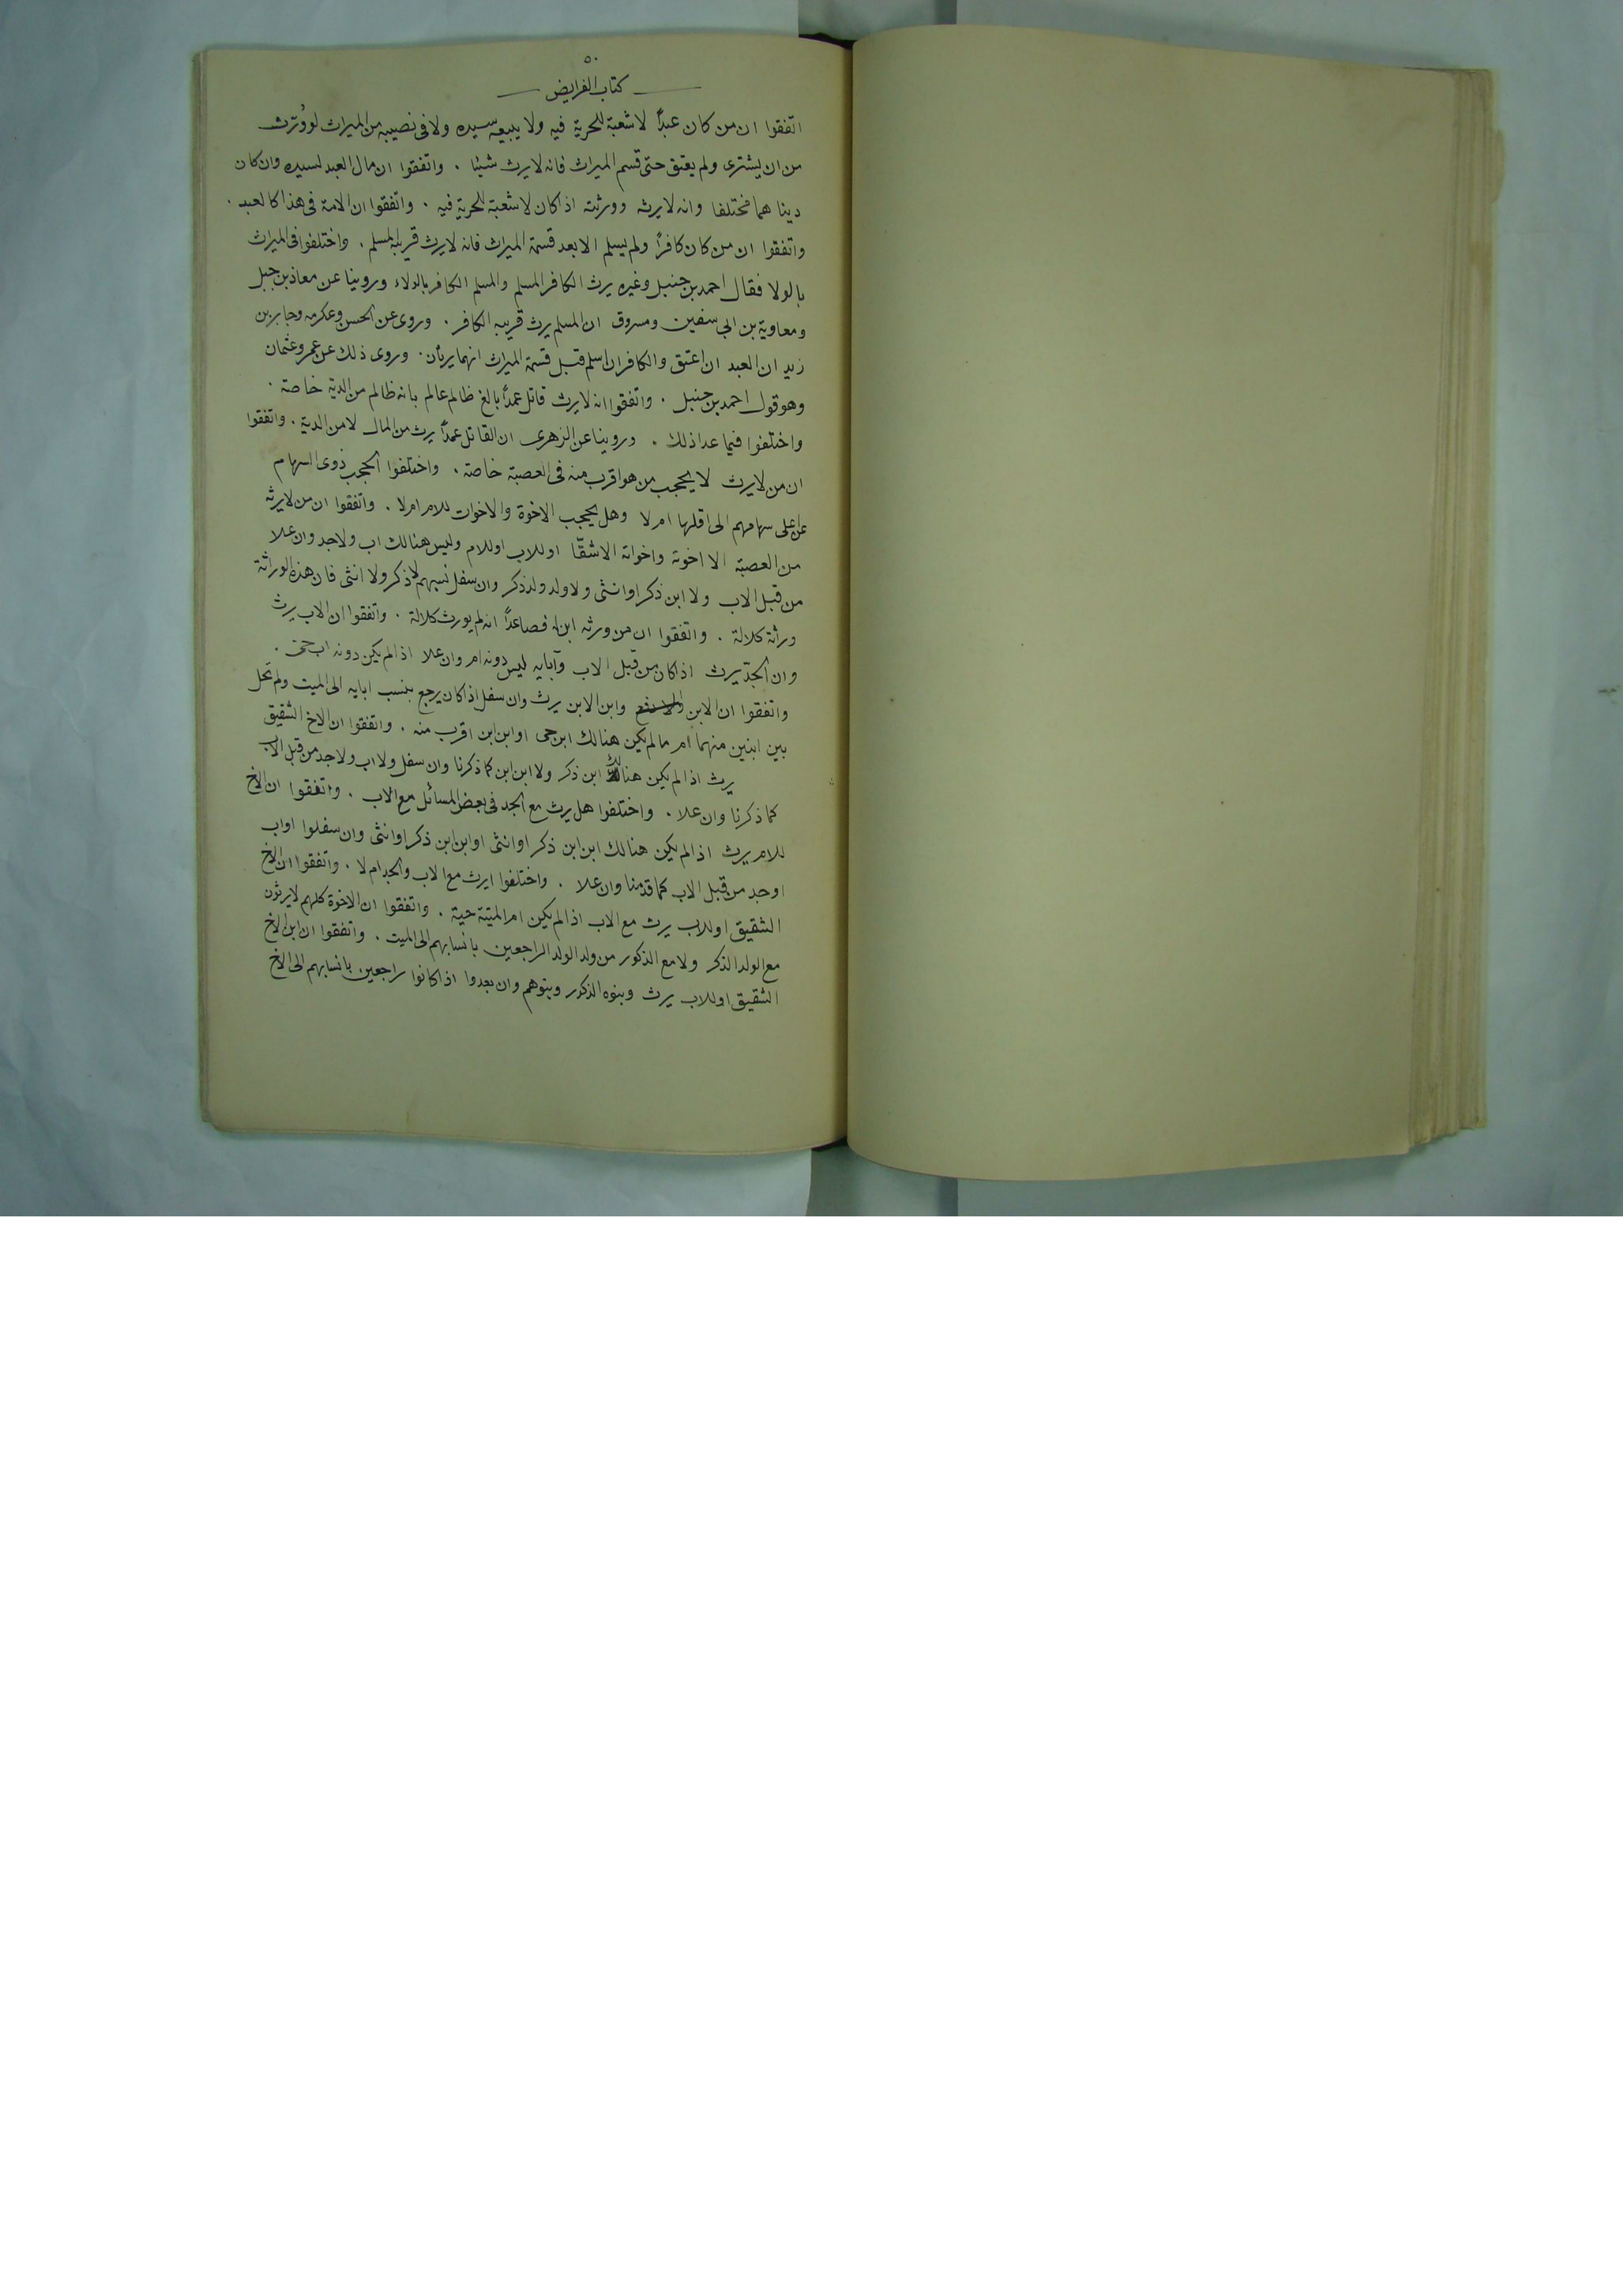 ٥٠
كتاب الفرايض
اتفقوا ان من كان عبداً لا شعبة للحرية فيه ولا يبيعه سيده ولا فى نصيبه من الميراث لو وُرّث
من ان يشترى ولم يعتق حتى قسم الميراث فانه لا يرث شيئا . واتفقوا ان مال العبد لسيده وان كان
دينا هما مختلفا وانه لا يرثه وورثته اذا كان لا شعبة للحرية فيه . واتفقوا ان الامة فى هذا كالعبد .
واتفقوا ان من كان كافراً ولم يسلم الا بعد قسمة الميراث فانه لا يرث قريبه المسلم . واختلفوا فى الميراث
بالولا فقال احمد بن حنبل وغيره يرث الكافر المسلم والمسلم الكافر بالولاء وروينا عن معاذ بن جبل
ومعاوية بن ابى سفين ومسروق ان المسلم يرث قريبه الكافر . وروى عن الحسن وعكرمه وجابر بن
زيد ان العبد ان اعتق والكافر ان اسلم قبل قسمة الميراث انهما يرثان . وروى ذلك عن عمر وعثمان
وهو قول احمد بن حنبل . واتفقوا انه لا يرث قاتل عمداً بالغ ظالم عالم بانه ظالم من الدية خاصة .
واختلفوا فيما عدا ذلك . وروينا عن الزهرى ان القاتل عمداً يرث من المال لا من الدية . واتفقوا
ان من لا يرث لا يحجب من هو اقرب منه فى العصبة خاصة . واختلفوا الحجب ذوى السهام
عن اعلى سهامهم الى اقلها ام لا وهل يحجب الاخوة والاخوات للام ام لا . واتفقوا ان من لا يرثه
من العصبة الا اخوته واخواته الاشقا او للاب او للام وليس هنالك اب ولا جد وان علا
من قبل الاب ولا ابن ذكر او انثى ولا ولد ولد ذكر وان سفل نسبهم لا ذكر ولا انثى فان هذه الوراثة
وراثة كلالة . واتفقوا ان من ورثه ابن له فصاعداً انه لم يورث كلالة . واتفقوا ان الاب يرث
وان الجدّ يرث اذا كان من قبل الاب وآبايه ليس دونه ام وان علا اذا لم يكن دونه اب حتى .
واتفقوا ان الابن وابن الابن يرث وان سفل اذا كان يرجع بنسب ابايه الى الميت ولم تحل
بين ابنين منهما ام ما لم يكن هنالك ابن حى او ابن ابن اقرب منه . واتفقوا ان الاخ الشقيق
يرث اذا لم يكن هنالك ابن ذكر ولا ابن ابن كما ذكرنا وان سفل ولا اب ولا جد من قبل الاب
كما ذكرنا وان علا . واختلفوا هل يرث مع الجد فى بعض المسائل مع الاب . واتفقوا ان الاخ
للام يرث اذا لم يكن هنالك ابن ابن ذكر او انثى او ابن ابن ذكر او انثى وان سفلوا او اب
او جد من قبل الاب كما قدمنا وان علا . واختلفوا ايرث مع الاب والجد ام لا . واتفقوا ان الاخ
الشقيق او للاب يرث مع الاب اذا لم يكن ام الميتة حية . واتفقوا ان الاخوة كلهم لا يرثون
مع الولد الذكر ولا مع الذكور من ولد الولد الراجعين بانسابهم الى الميت . واتفقوا ان ابن الاخ
الشقيق او للاب يرث وبنوه الذكور وبنوهم وان بعدوا اذا كانوا راجعين بانسابهم الى الاخ